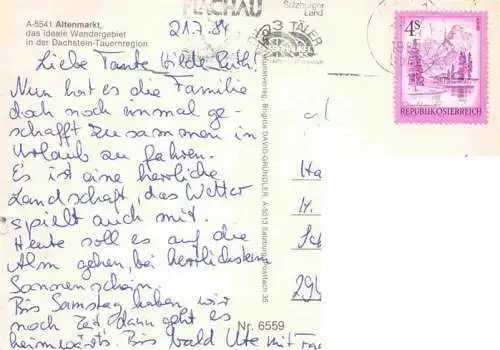 A-5541 Altenmarkt,
das ideale Wandergebiet
in der Dachstein-Tauernregion
21.7.84
FLACHAU
Salzburger
Land
3 TÄLER
4S
REPUBLIK ÖSTERREICH
Liebe Tante Hilde
Nun hat es die Familie
doch noch einmal ge-
schafft zusammen in
Urlaub zu fahren.
Es ist eine herrliche
Landschaft, das Wetter
spielt auch mit.
Heute soll es auf die
Alm gehen, bei herrlichstem
Sonnenschein.
Bis Samstag haben wir
noch Zeit, dann geht es
heimwärts. Bis bald Ute mit Fam
Kunstverlag: Brigitte DAVID-GRÜNDLER, A 5013 Salzburg, Postfach 36
Nr. 6559
Ha
H.
Sch
290